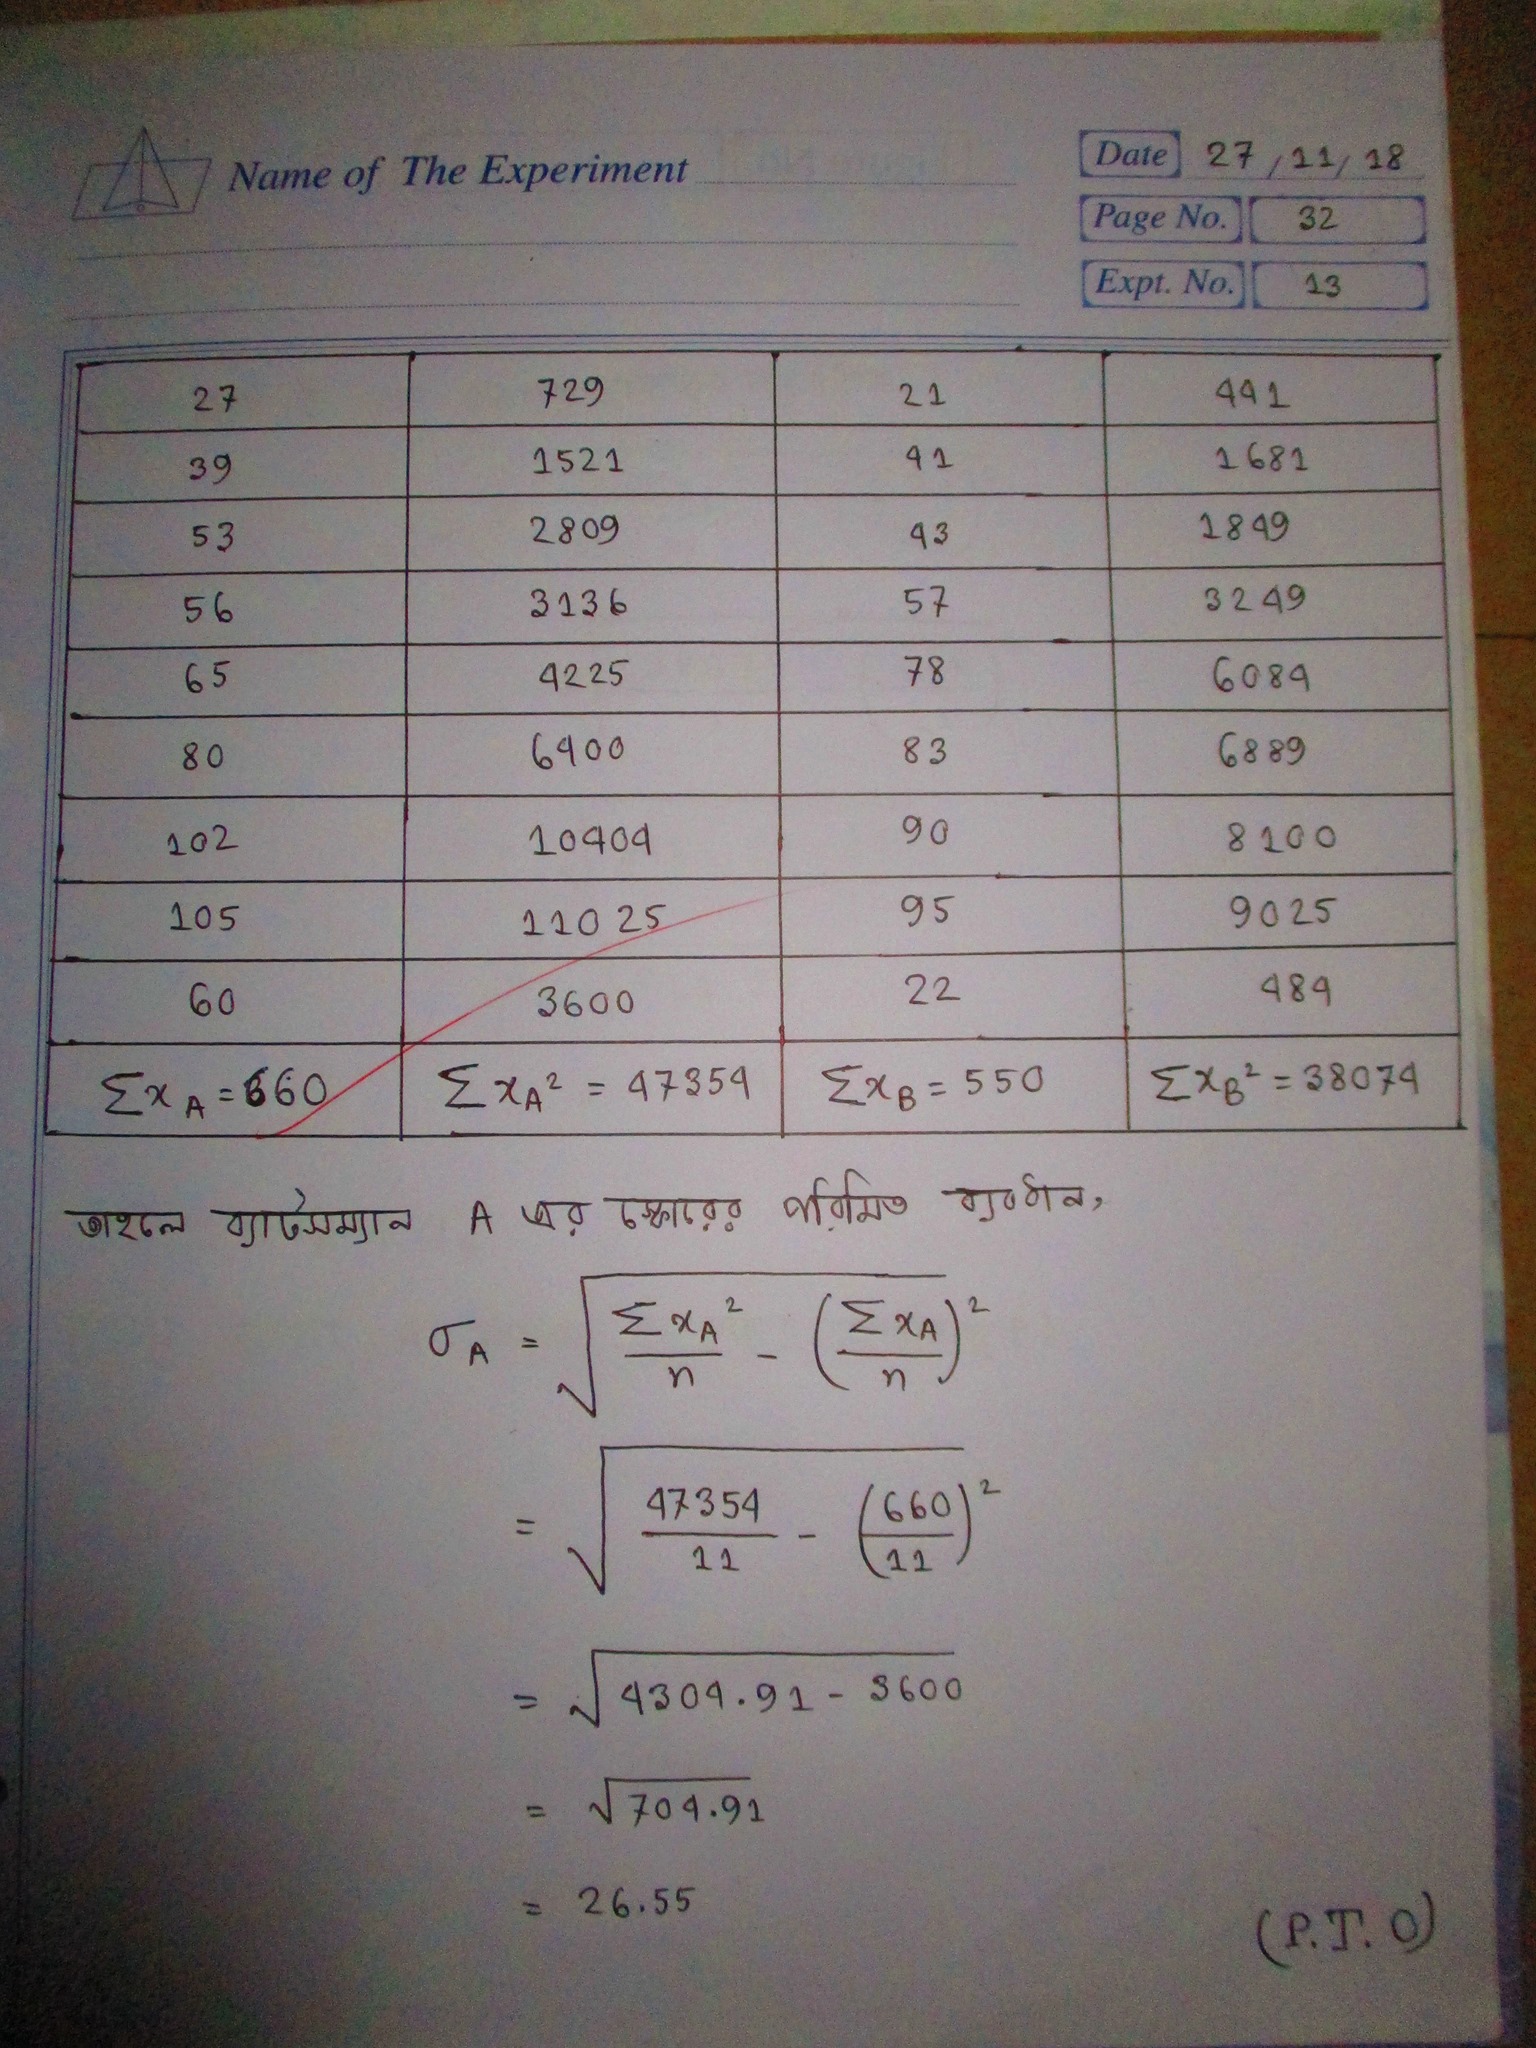 Name of The Experiment
Date 27/11/18
Page No. 32
Expt. No. 13
27 729 21 441
39 1521 41 1681
53 2809 43 1849
56 3136 57 3249
65 4225 78 6084
80 6400 83 6889
102 10404 90 8100
105 11025 95 9025
60 3600 22 484
Σx_A = 660 Σx_A² = 47354 Σx_B = 550 Σx_B² = 38074
তাহলে ব্যাটসম্যান A এর স্কোরের পরিমিত ব্যবধান,
σ_A = √(Σx_A²/n - (Σx_A/n)²)
= √(47354/11 - (660/11)²)
= √(4304.91 - 3600)
= √704.91
= 26.55
(P.T.O)